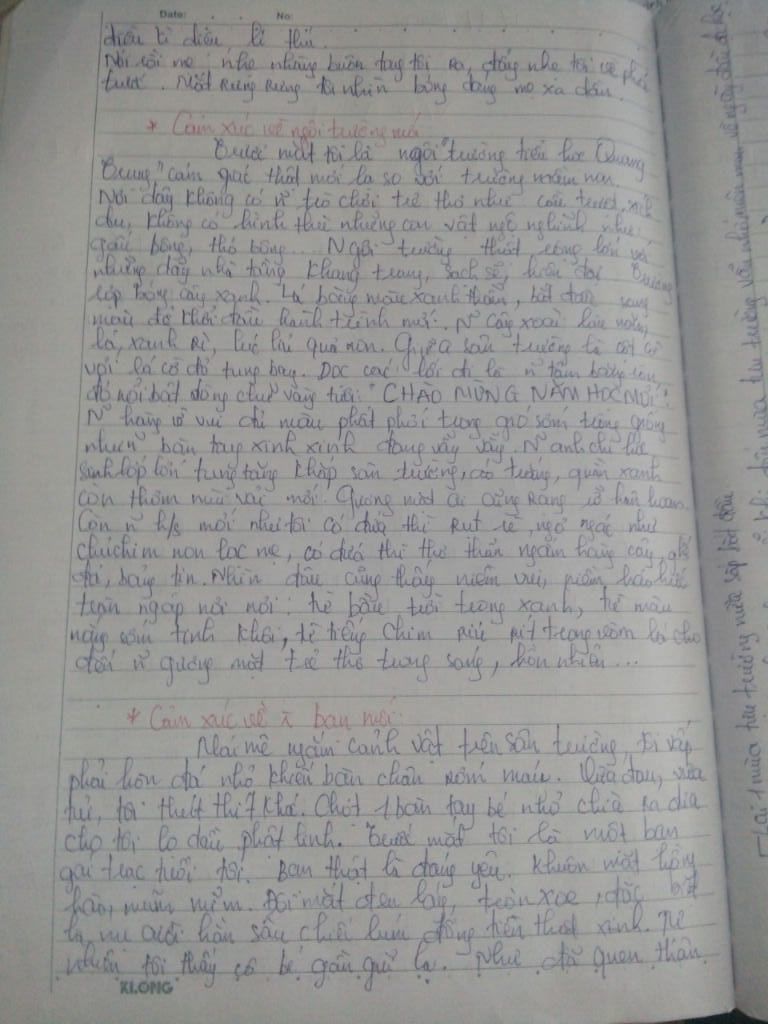 Date: No:
điều kì diệu lí thú.
Nói rồi mẹ nhẹ nhàng buông tay tôi ra, đẩy nhẹ tôi về phía
trước. Mắt rưng rưng tôi nhìn bóng dáng mẹ xa dần.
* Cảm xúc về ngôi trường mới
Trước mắt tôi là ngôi "trường tiểu học Quang
Trung" cảm giác thật mới lạ so với trường mầm non.
Nơi đây không có ~ trò chơi trẻ thơ như cầu trượt, xích
đu, không có hình thù những con vật ngộ nghĩnh như:
gấu bông, thỏ bông... Ngôi trường thật rộng lớn với
những dãy nhà tầng khang trang, sạch sẽ, hiện đại. Trường
rợp bóng cây xanh. Lá bàng màu xanh thẫm, bắt đầu sang
màu đỏ khởi đầu hành trình mới. ~ cây xoài lâu năm,
lá xanh rì, lúc lỉu quả non. Giữa sân trường là cột cờ
với lá cờ đỏ tung bay. Dọc các lối đi là ~ tấm băng rôn
đỏ nổi bật dòng chữ vàng tươi: "CHÀO MỪNG NĂM HỌC MỚI".
~ hàng cờ vui đủ màu phất phới trong gió sớm trông giống
như ~ bàn tay xinh xinh đang vẫy vẫy. ~ anh chị học
sinh lớp lớn tung tăng khắp sân trường, áo trắng, quần xanh
còn thơm mùi vải mới. Gương mặt ai cũng rạng rỡ hân hoan.
Còn ~ h/s mới như tôi có đứa thì rụt rè, ngơ ngác như
chú chim non lạc mẹ, có đứa thì thơ thẩn ngắm hàng cây, ghế
đá, bảng tin. Nhìn đâu cũng thấy niềm vui, niềm háo hức
tràn ngập nơi nơi: từ bầu trời trong xanh, từ màu
nắng sớm tinh khôi, từ tiếng chim ríu rít trong vòm lá cho
đến ~ gương mặt trẻ thơ trong sáng, hồn nhiên...
* Cảm xúc về bạn mới:
Mải mê ngắm cảnh vật trên sân trường, tôi vấp
phải hòn đá nhỏ khiến bàn chân rớm máu. Vừa đau, vừa
tủi, tôi thút thít khóc. Chợt 1 bàn tay bé nhỏ chìa ra đưa
cho tôi lọ dầu phật linh. Trước mắt tôi là một bạn
gái trạc tuổi tôi. Bạn thật là đáng yêu. Khuôn mặt hồng
hào, mũm mĩm. Đôi mắt đen láy, tròn xoe, đặc biệt
là nụ cười hằn sâu chiếc lúm đồng tiền thật xinh. Tự
nhiên tôi thấy cô bé gần gũi lạ. Như đã quen thân
KLONG